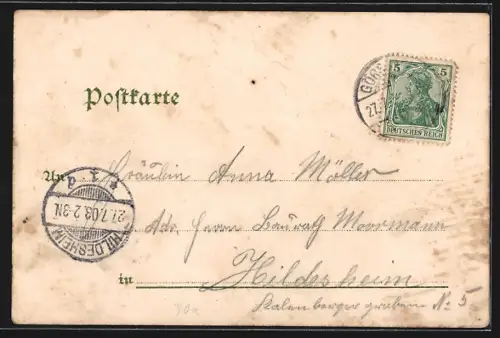 5 5
DEUTSCHES REICH
GÖR
27.
Postkarte
An Fräulein Anna Möller
* 1 a
27.7.03. 2-3N.
HILDESHEIM
Adr. Herrn Baurath Moormann
in Hildesheim
Kalenberger graben No 5